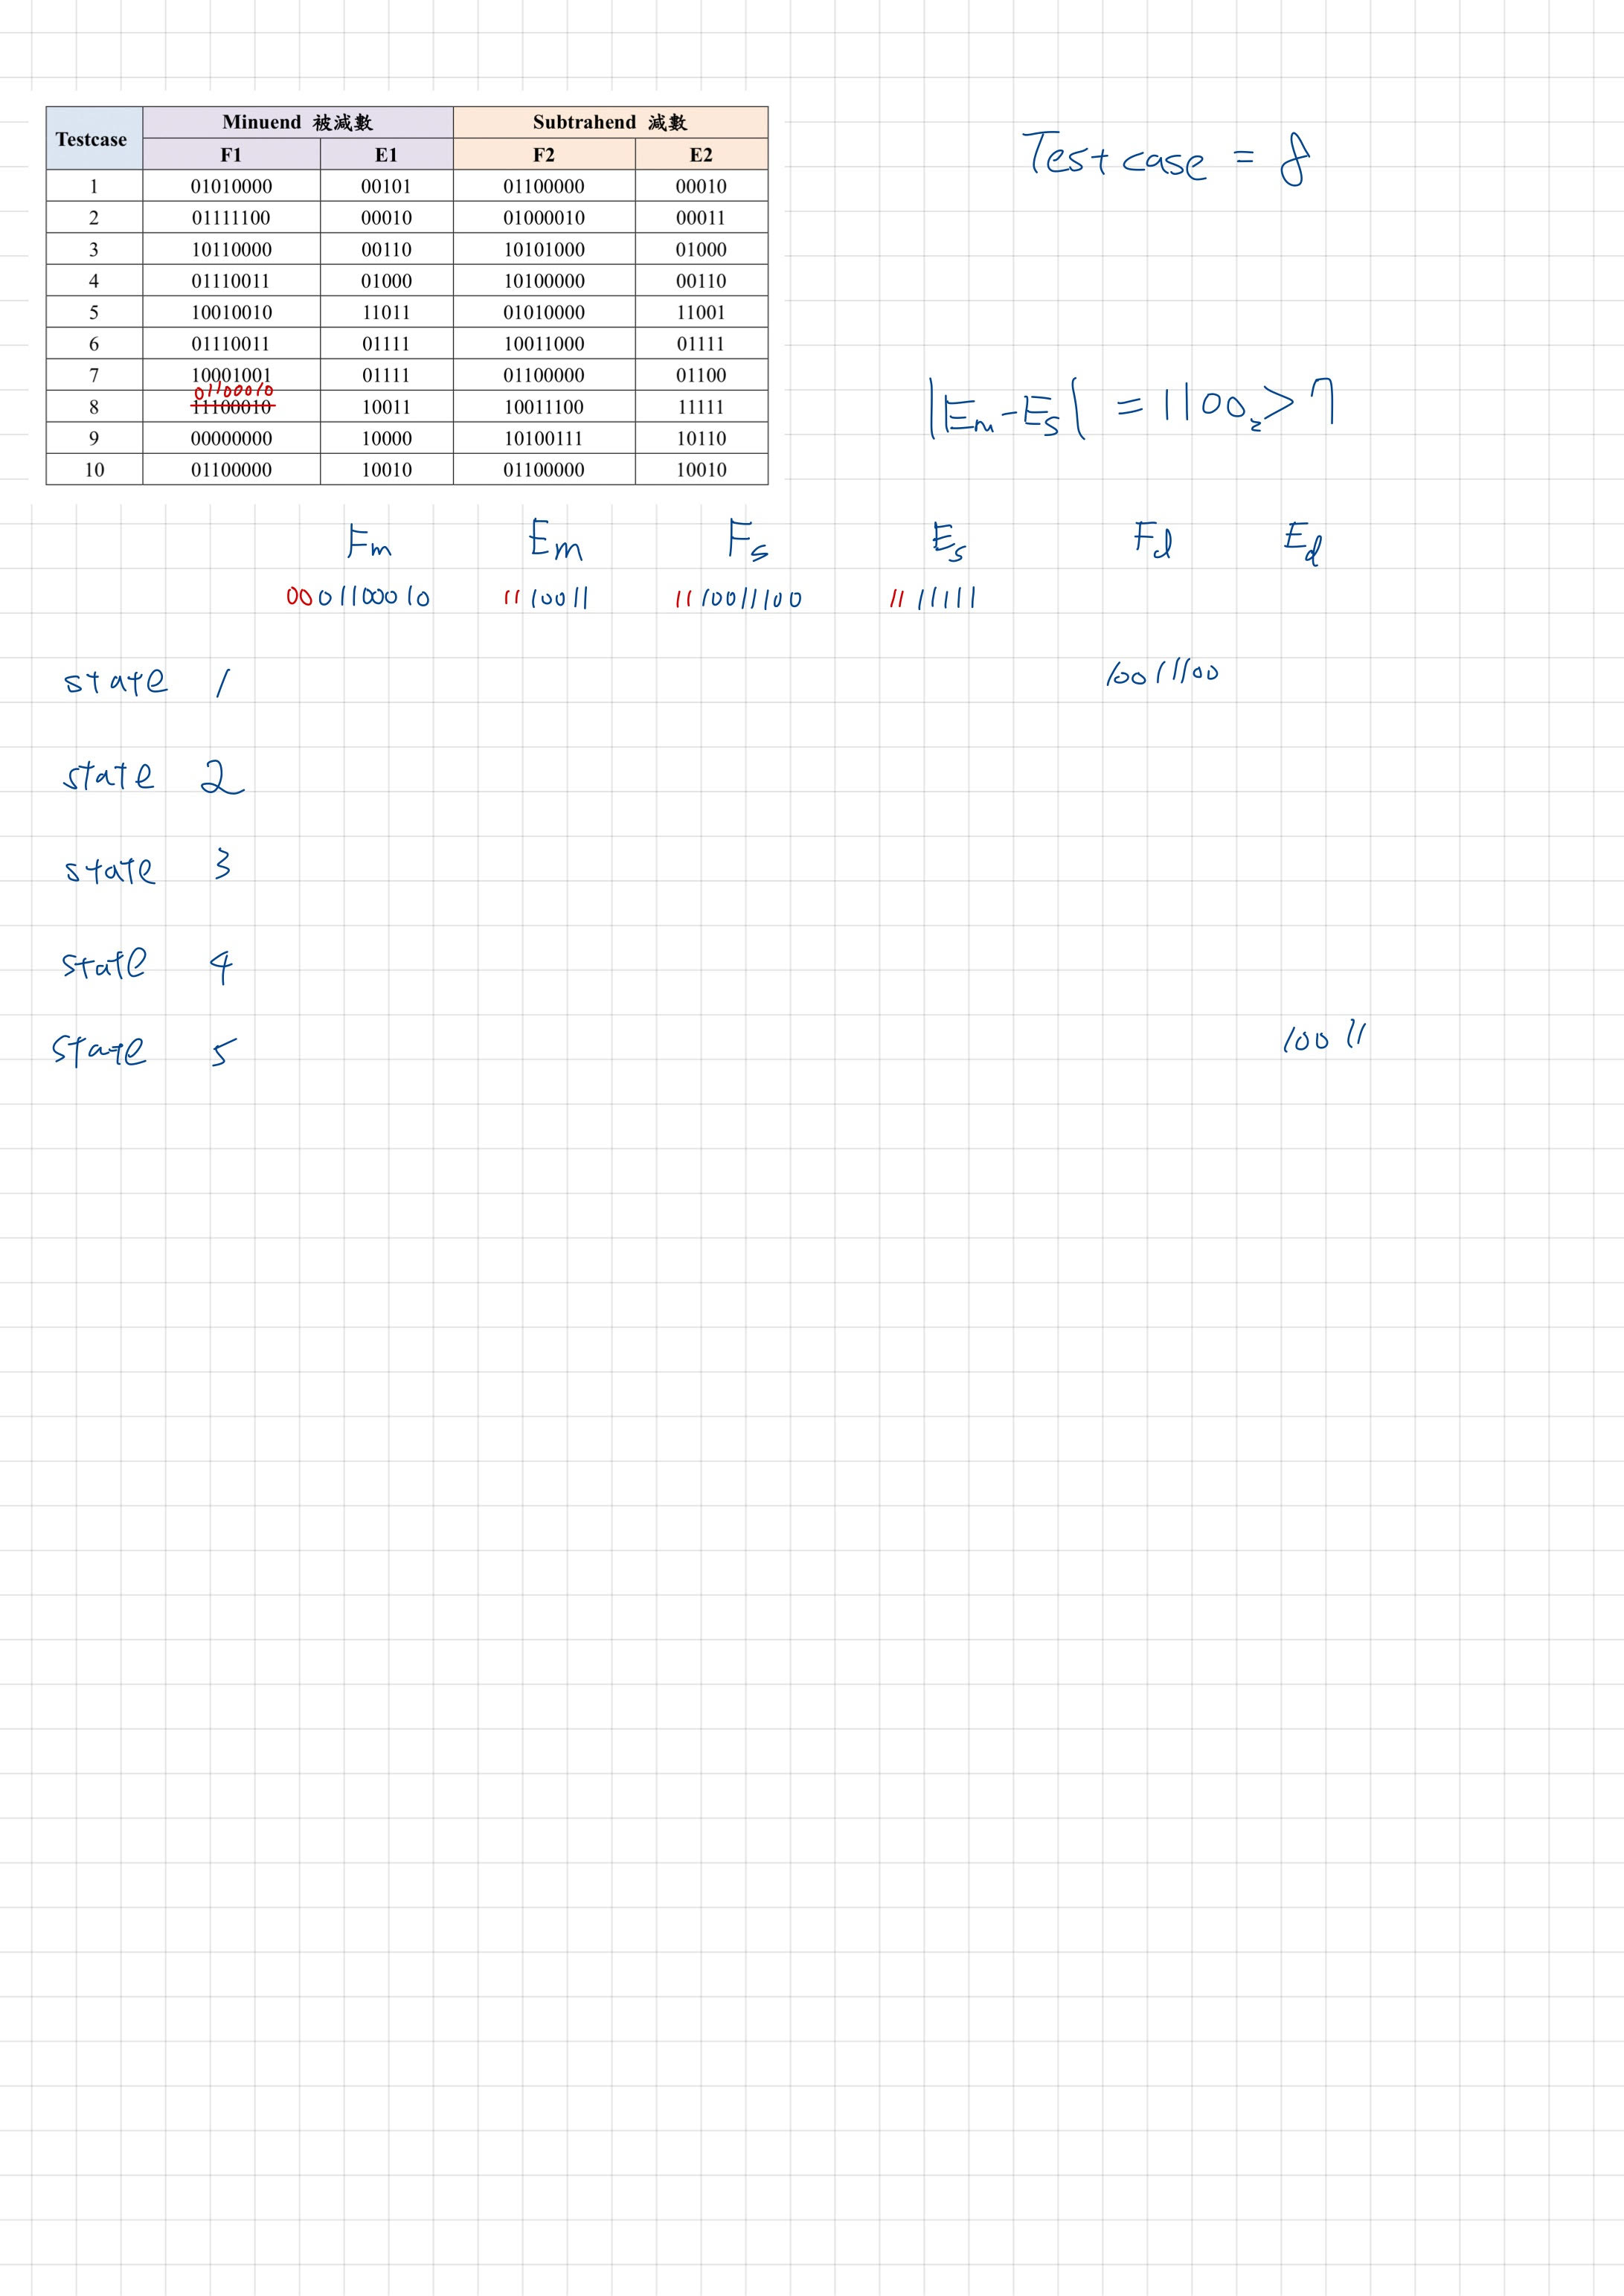 Testcase Minuend 被減數 Subtrahend 減數
F1 E1 F2 E2
1 01010000 00101 01100000 00010
2 01111100 00010 01000010 00011
3 10110000 00110 10101000 01000
4 01110011 01000 10100000 00110
5 10010010 11011 01010000 11001
6 01110011 01111 10011000 01111
7 10001001 01111 01100000 01100
01100010
8 11100010 10011 10011100 11111
9 00000000 10000 10100111 10110
10 01100000 10010 01100000 10010
Testcase = 8
|Em-Es| = 1100₂ > 7
Fm Em Fs Es Fd Ed
0001100010 1110011 1110011100 1111111
state 1 10011100
state 2
state 3
state 4
state 5 10011